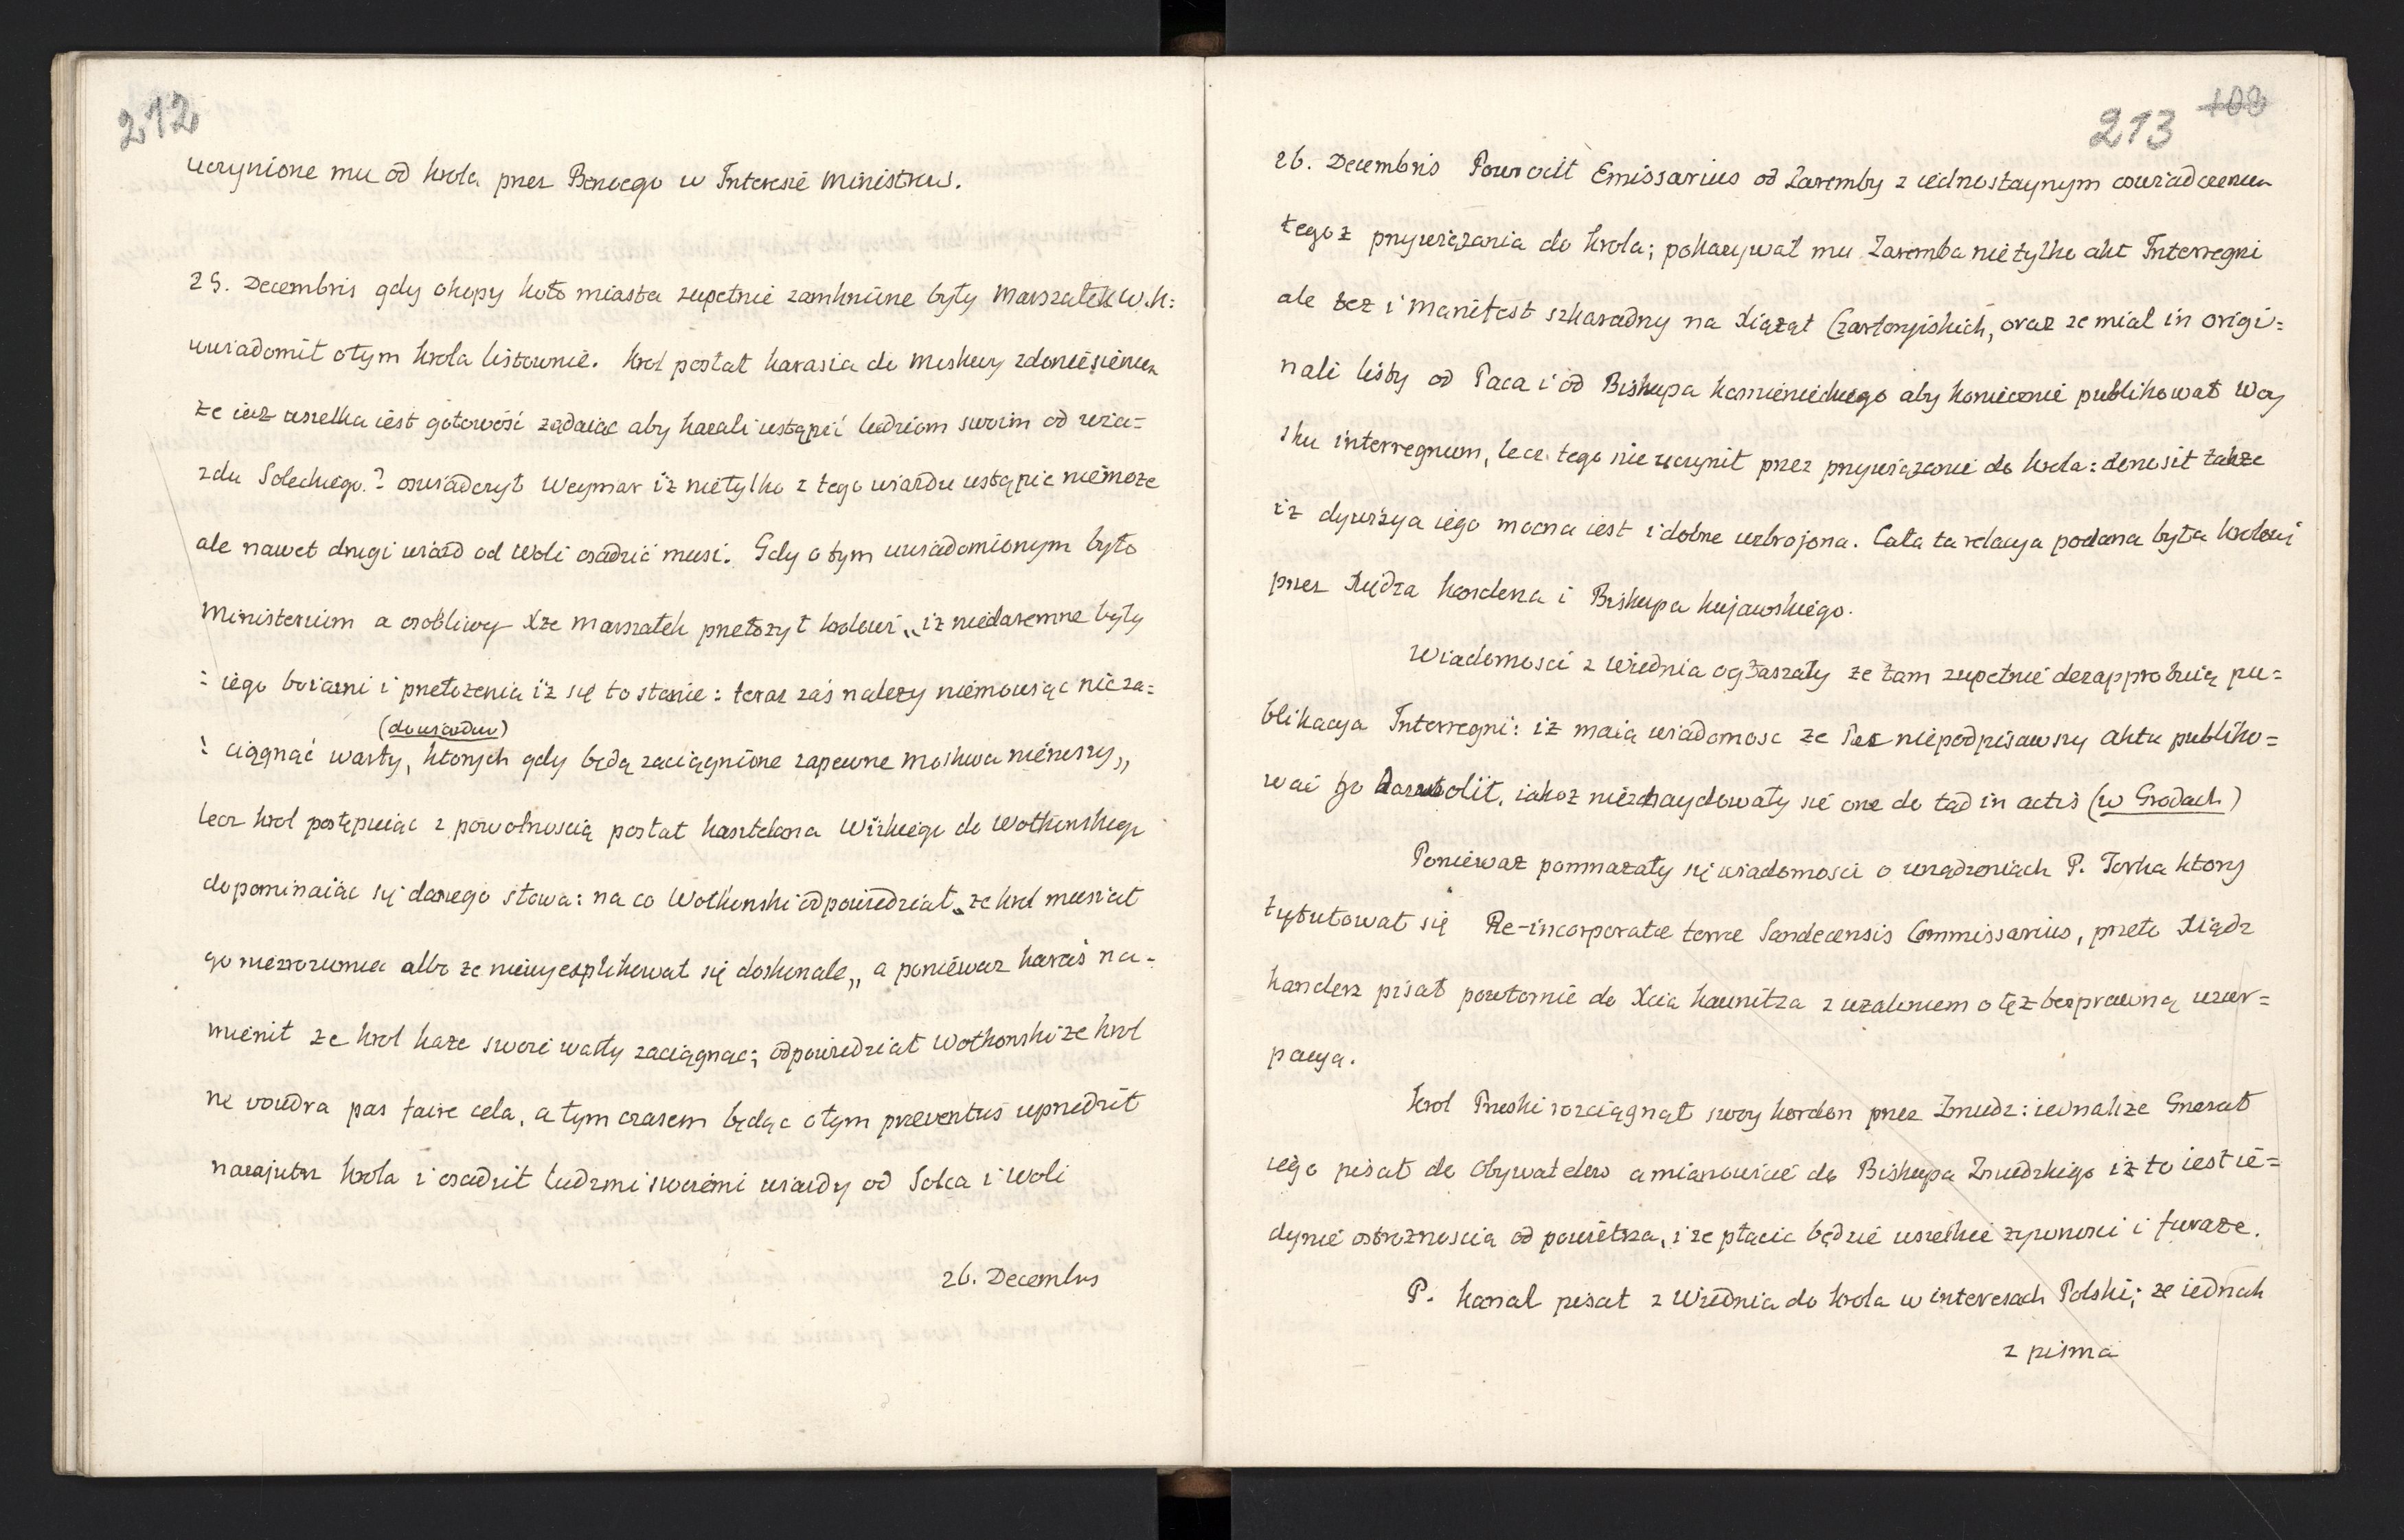 212
uczynione mu od krola przez Benoego w Interesie Ministrow.
25. Decembris gdy okopy koło miasta zupełnie zamknione były Marszałek W.K:
uwiadomił otym krola listownie. Krol posłał karasia do Moskwy zdoniesieniem
że iuż wszelka iest gotowość żądaiąc aby kazali ustąpić ludziom swoim od wia=
zdu Soleckiego.? oswiadczył Weymar iż nietylko z tego wiazdu ustąpic niemoże
ale nawet drugi wiazd od Woli osadzić musi. Gdy o tym uwiadomionym było
Ministerium a osobliwy Xże marszałek przełożył krolowi „iż niedaremne były
: iego boiazni i przełożenia iż się to stanie: teraz zaś należy niemowiąc nic za=
(do wiazdow)
: ciągnąć warty, ktorych gdy będą zaciągnione zapewne moskwa nieruszy„
lecz krol postępuiąc z powolnoscią posłał kasztelana Wizkiego do Wołkonskiego
dopominaiąc się danego słowa: na co Wołkonski odpowiedział „że krol musiał
go niezrozumiec albo że niewyexplikował się doskonale„ a ponieważ karaś na=
mienił że krol każe swoie warty zaciągnąc; odpowiedział Wołkonski że krol
ne voudra pas faire cela, a tym czasem będąc o tym preventus uprzedził
nazajutrz krola i osadził ludzmi swoiemi wiazdy od Solca i Woli
26. Decembris
213 108
26. Decembris Powrocił Emissarius od Zaremby z iednostaynym oswiadczeniem
tegoż przywiązania do krola; pokazywał mu Zaremba nietylko akt Interregni
ale też i Manifest szkaradny na Xiążąt Czartoryiskich, oraz że miał in origi=
nali listy od Paca i od Biskupa kamienieckiego aby koniecznie publikował Woy
sku interregnum, lecz tego nie uczynił przez przywiązanie do krola: donosił także
iż dywizya iego mocna iest i dobrze uzbrojona. Cała ta relacya podana była krolowi
przez Xiędza kanclerza i Biskupa kujawskiego.
Wiadomosci z Wiednia ogłaszały że tam zupełnie dezapprobuią pu=
blikacya Interregni: iż maią wiadomosc że Pac niepodpisawszy aktu publiko=
wać go dozwolił, iakoż nieznaydowały się one do tąd in actis (w Grodach)
Ponieważ pomnażały się wiadomosci o urządzeniach P. Torka ktory
tytułował się Re-incorporatae terrae Sandecensis Commissarius, przeto Xiądz
kanclerz pisał powtornie do Xcia kaunitza z użaleniem o tęż bezprawną uzur=
pacyą.
Krol Pruski rozciągnął swoy kordon przez Zmudz: iednakże Generał
iego pisał do Obywatelow a mianowicie do Biskupa Zmudzkiego iż to iest ie=
dynie ostrożnoscią od powietrza, i że płacic będzie wszelkie żywnosci i furaże.
P. kanal pisał z Wiednia do krola w interesach Polski; że iednak
z pisma